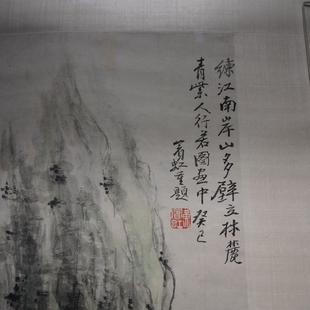 練江南岸山多壁立林麓
青紫人行若圖畫中癸巳
賓虹重題